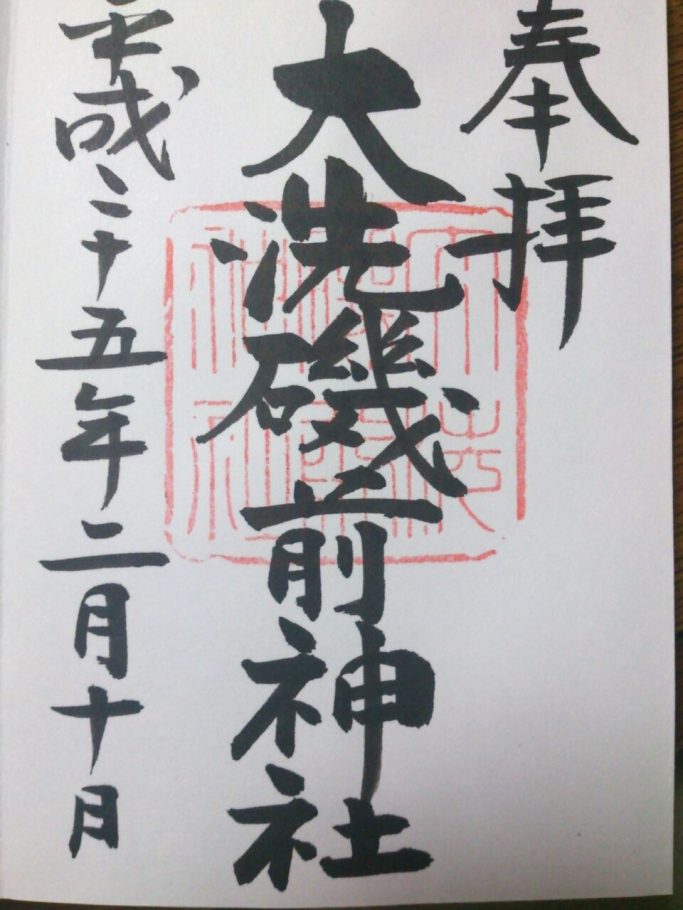 奉拝
大洗磯前神社
平成二十五年二月十日